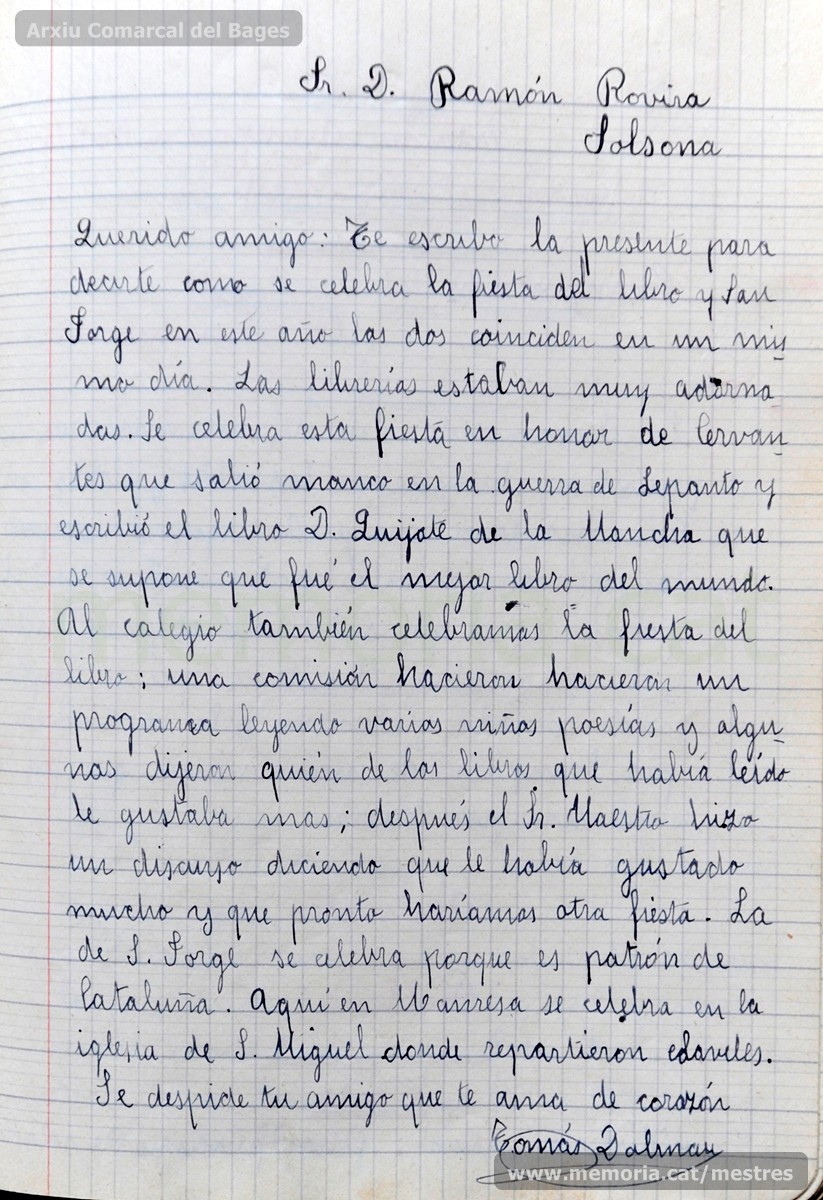 Arxiu Comarcal del Bages
Sr. D. Ramón Rovira
Solsona
Querido amigo: Te escribo la presente para
decirte como se celebra la fiesta del libro y San
Jorge en este año las dos coinciden en un mis
mo día. Las librerías estaban muy adorna
das. Se celebra esta fiesta en honor de Cervan
tes que salió manco en la guerra de Lepanto y
escribió el libro D. Quijote de la Mancha que
se supone que fué el mejor libro del mundo.
Al colegio también celebramos la fiesta del
libro; una comisión hacieron hacieron un
programa leyendo varios niños poesías y algu
nos dijeron quién de los libros que había leído
le gustaba mas; después el Sr. Maestro hizo
un discurso diciendo que le había gustado
mucho y que pronto haríamos otra fiesta. La
de S. Jorge se celebra porque es patrón de
Cataluña. Aquí en Manresa se celebra en la
iglesia de S. Miguel donde repartieron claveles.
Se despide tu amigo que te ama de corazón
Tomás Dalmau
www.memoria.cat/mestres